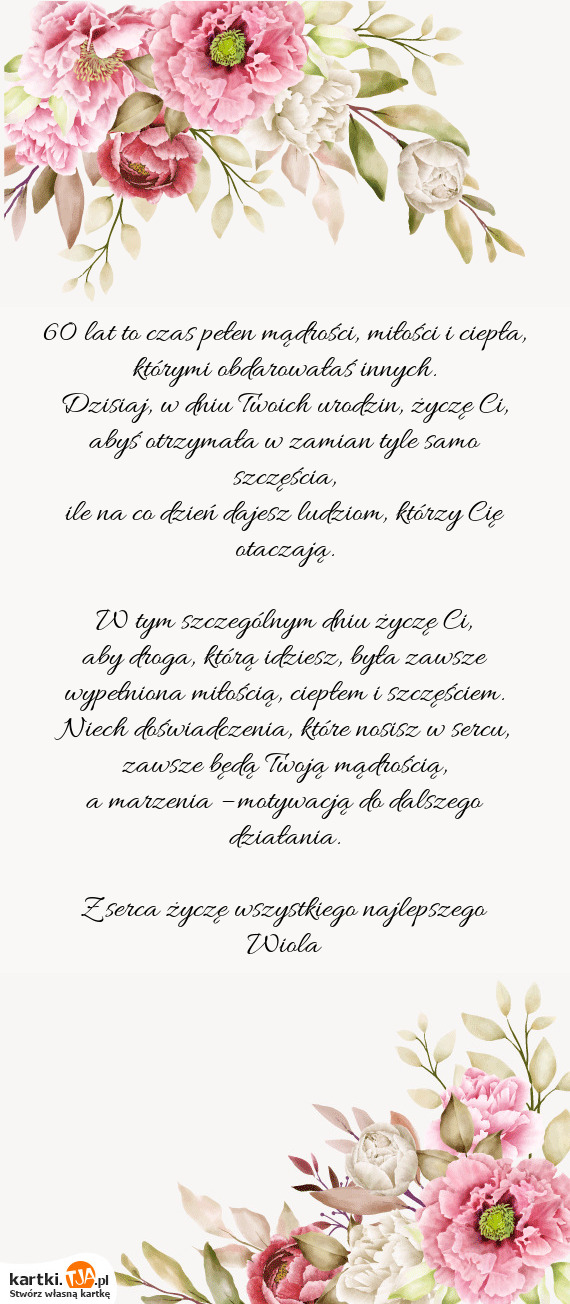 60 lat to czas pełen mądrości, miłości i ciepła,
którymi obdarowałaś innych.
Dzisiaj, w dniu Twoich urodzin, życzę Ci,
abyś otrzymała w zamian tyle samo
szczęścia,
ile na co dzień dajesz ludziom, którzy Cię
otaczają.
W tym szczególnym dniu życzę Ci,
aby droga, którą idziesz, była zawsze
wypełniona miłością, ciepłem i szczęściem.
Niech doświadczenia, które nosisz w sercu,
zawsze będą Twoją mądrością,
a marzenia –motywacją do dalszego
działania.
Z serca życzę wszystkiego najlepszego
Wiola
kartki.TJA.pl
Stwórz własną kartkę